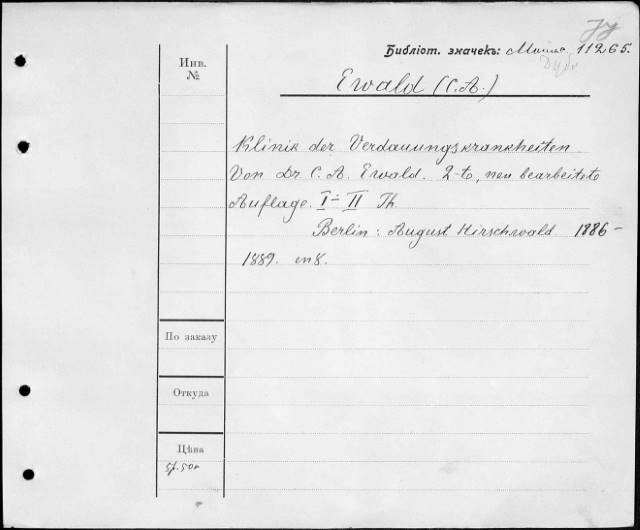 Библіот. значекъ: 11265.
Инв. №
Ewald (C. A.)
Klinik der Verdauungskrankheiten
Von Dr. C. A. Ewald. 2-te, neu bearbeitete
Auflage. I-II Th.
Berlin: August Hirschwald 1886-
1889. in 8.
По заказу
Откуда
Цѣна